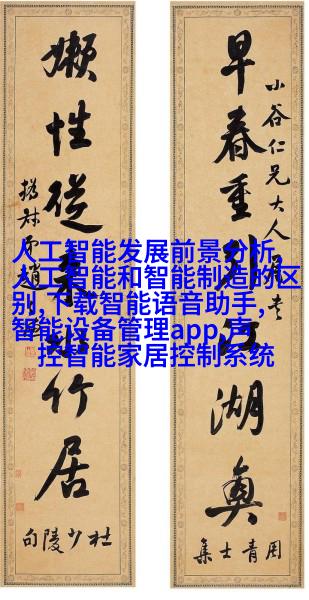 人工智能发展前景分析,
人工智能和智能制造的区
别,下载智能语音助手,
智能设备管理app,声
控智能家居控制系统
早春重引江湖興
小谷仁兄大人
周青士集
嬾性從来水竹居
杜少陵句
撝叔弟趙